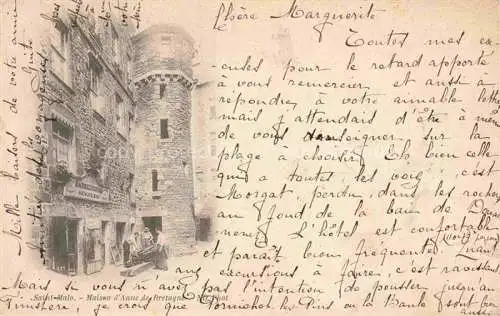 Chère Marguerite
Toutes mes ex-
cuses pour le retard apporté
à vous remercier, et aussi à
répondre à votre aimable lettre
mais j'attendais d'être à même
de vous renseigner sur la
plage à choisir. Eh bien celle
qui a toutes les voix, c'est
Morgat, perdu dans les rochers
au fond de la baie de Douar-
nenez. L'hôtel est confortable
et paraît bien fréquenté. Quant
aux excursions à faire, c'est ravissant
Mais si vous n'avez pas l'intention de pousser jusqu'au
Finistère, je crois que Pornichet les Pins ou La Baule font bien
Mille baisers de votre amie
Saint-Malo. - Maison d'Anne de Bretagne